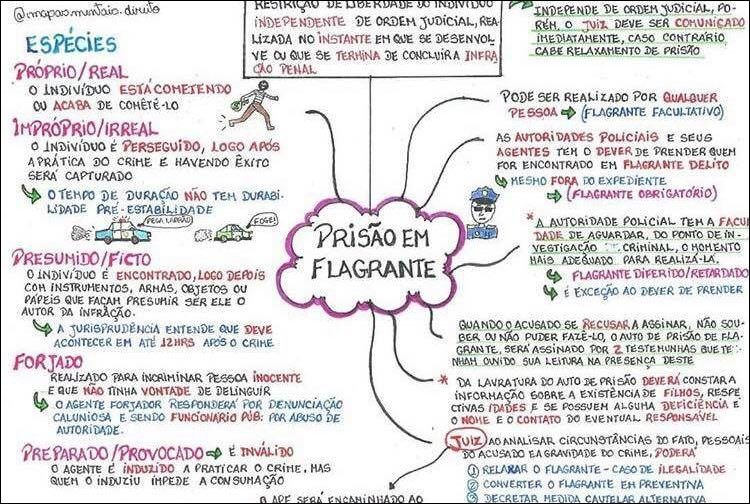 @mapas.mentais.direito
ESPÉCIES
PRÓPRIO/REAL
O INDIVÍDUO ESTÁ COMETENDO
OU ACABA DE COMETÊ-LO
IMPRÓPRIO/IRREAL
O INDIVÍDUO É PERSEGUIDO, LOGO APÓS
A PRÁTICA DO CRIME E HAVENDO ÊXITO
SERÁ CAPTURADO
O TEMPO DE DURAÇÃO NÃO TEM DURABI-
LIDADE PRÉ-ESTABILIDADE
PEGA LADRÃO
FOGE!
PRESUMIDO/FICTO
O INDIVÍDUO É ENCONTRADO, LOGO DEPOIS
COM INSTRUMENTOS, ARMAS, OBJETOS OU
PAPÉIS QUE FAÇAM PRESUMIR SER ELE O
AUTOR DA INFRAÇÃO.
A JURISPRUDÊNCIA ENTENDE QUE DEVE
ACONTECER EM ATÉ 12HRS APÓS O CRIME
FORJADO
REALIZADO PARA INCRIMINAR PESSOA INOCENTE
E QUE NÃO TINHA VONTADE DE DELINQUIR
O AGENTE FORJADOR RESPONDERÁ POR DENUNCIAÇÃO
CALUNIOSA E SENDO FUNCIONÁRIO PÚB. POR ABUSO DE
AUTORIDADE.
PREPARADO/PROVOCADO É INVÁLIDO
O AGENTE É INDUZIDO A PRATICAR O CRIME, MAS
QUEM O INDUZIU IMPEDE A CONSUMAÇÃO
RESTRIÇÃO DE LIBERDADE DO INDIVÍDUO
INDEPENDENTE DE ORDEM JUDICIAL, REA-
LIZADA NO INSTANTE EM QUE SE DESENVOL
VE OU QUE SE TERMINA DE CONCLUIR A INFRA
ÇÃO PENAL
PRISÃO EM
FLAGRANTE
INDEPENDE DE ORDEM JUDICIAL, PO-
RÉM, O JUIZ DEVE SER COMUNICADO
IMEDIATAMENTE, CASO CONTRÁRIO
CABE RELAXAMENTO DE PRISÃO
PODE SER REALIZADO POR QUALQUER
PESSOA (FLAGRANTE FACULTATIVO)
AS AUTORIDADES POLICIAIS E SEUS
AGENTES TEM O DEVER DE PRENDER QUEM
FOR ENCONTRADO EM FLAGRANTE DELITO
MESMO FORA DO EXPEDIENTE
(FLAGRANTE OBRIGATÓRIO)
* A AUTORIDADE POLICIAL TEM A FACUL
DADE DE AGUARDAR, DO PONTO DE IN-
VESTIGAÇÃO CRIMINAL, O MOMENTO
MAIS ADEQUADO PARA REALIZÁ-LA.
FLAGRANTE DIFERIDO/RETARDADO
É EXCEÇÃO AO DEVER DE PRENDER
QUANDO O ACUSADO SE RECUSAR A ASSINAR, NÃO SOU-
BER OU NÃO PUDER FAZÊ-LO, O AUTO DE PRISÃO DE FLA-
GRANTE, SERÁ ASSINADO POR 2 TESTEMUNHAS QUE TE-
NHAM OUVIDO SUA LEITURA NA PRESENÇA DESTE
* DA LAVRATURA DO AUTO DE PRISÃO DEVERÁ CONSTAR A
INFORMAÇÃO SOBRE A EXISTÊNCIA DE FILHOS, RESPE
CTIVAS IDADES E SE POSSUEM ALGUMA DEFICIÊNCIA E
O NOME E O CONTATO DO EVENTUAL RESPONSÁVEL
JUIZ AO ANALISAR CIRCUNSTÂNCIAS DO FATO, PESSOAIS
DO ACUSADO E A GRAVIDADE DO CRIME, PODERÁ
1 RELAXAR O FLAGRANTE - CASO DE ILEGALIDADE
2 CONVERTER O FLAGRANTE EM PREVENTIVA
3 DECRETAR MEDIDA CAUTELAR ALTERNATIVA
O APF SERÁ ENCAMINHADO AO